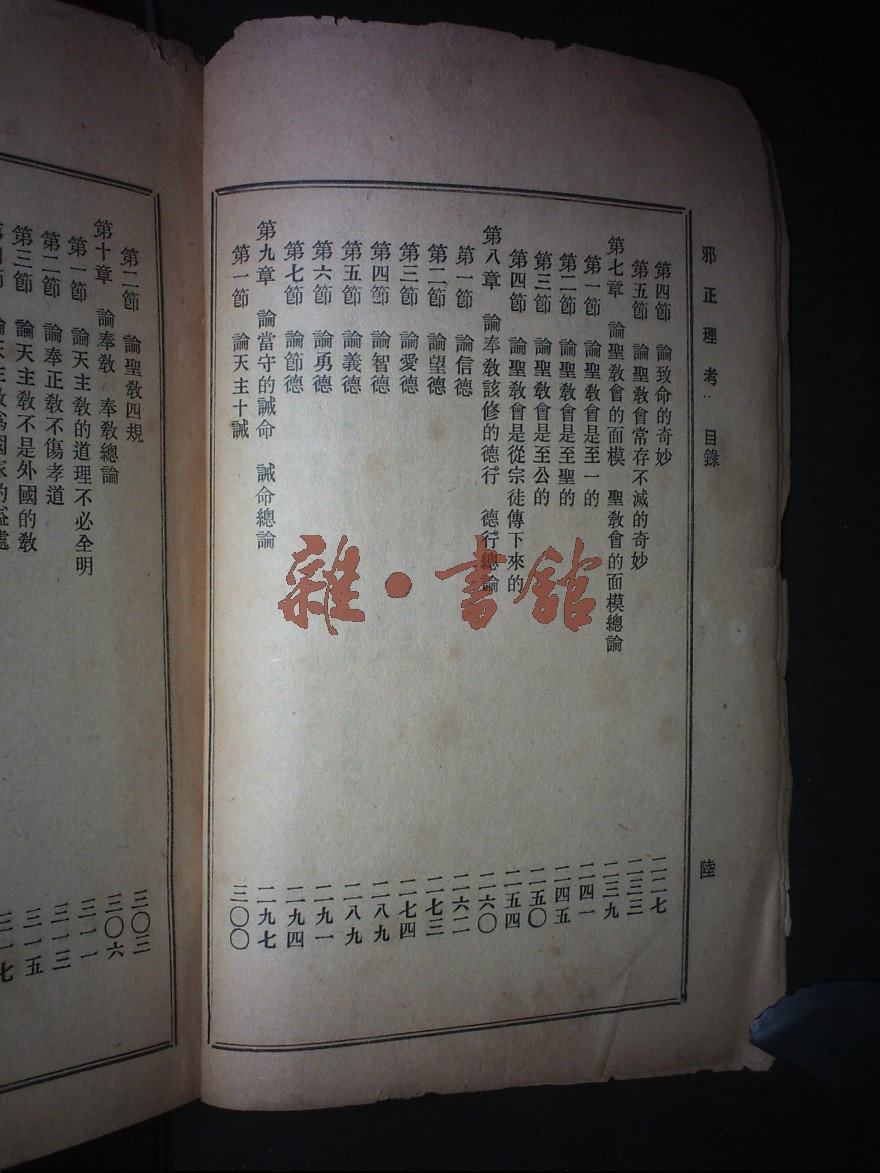 邪正理考： 目錄
陸
第四節 論致命的奇妙 二二七
第五節 論聖教會常存不滅的奇妙 二三三
第七章 論聖教會的面模 聖教會的面模總論 二三九
第一節 論聖教會是至一的 二四一
第二節 論聖教會是至聖的 二四五
第三節 論聖教會是至公的 二五〇
第四節 論聖教會是從宗徒傳下來的 二五四
第八章 論奉教該修的德行 德行總論 二六〇
第一節 論信德 二六二
第二節 論望德 二七三
第三節 論愛德 二七四
第四節 論智德 二八九
第五節 論義德 二八九
第六節 論勇德 二九一
第七節 論節德 二九四
第九章 論當守的誡命 誡命總論 二九七
第一節 論天主十誡 三〇〇
第二節 論聖教四規 三〇三
第十章 論奉教 奉教總論 三〇六
第一節 論天主教的道理不必全明 三一一
第二節 論奉正教不傷孝道 三一三
第三節 論天主教不是外國的教 三一五
三一七
雜·書館